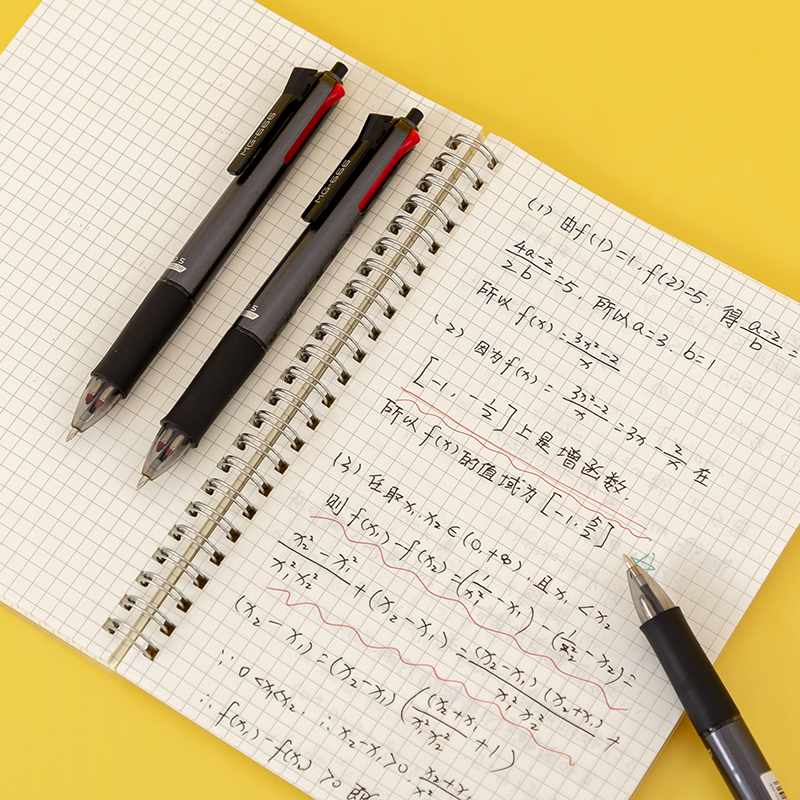 MG-666
MG-666
(1) 由f(1)=1, f(2)=5. 得 (a-2)/b =
(4a-2)/(2b) =5, 所以a=3. b=1
所以 f(x)= (3x²-2)/x
(2) 因为f(x)= (3x²-2)/x =3x- 2/x 在
[-1, -1/2] 上是增函数.
所以 f(x)的值域为 [-1, 5/2]
(3) 任取x₁, x₂∈(0,+∞), 且x₁<x₂
则 f(x₁)-f(x₂)=(1/x₁² -x₁)-(1/x₂² -x₂)=
(x₂²-x₁²)/(x₁²x₂²) +(x₂-x₁)= (x₂-x₁)(x₂+x₁)/(x₁²x₂²) +
(x₂-x₁)=(x₂-x₁)((x₂+x₁)/(x₁²x₂²) +1)
∵ 0<x₁<x₂, ∴ x₂-x₁>0.
∴ f(x₁)-f(x₂)>0 即